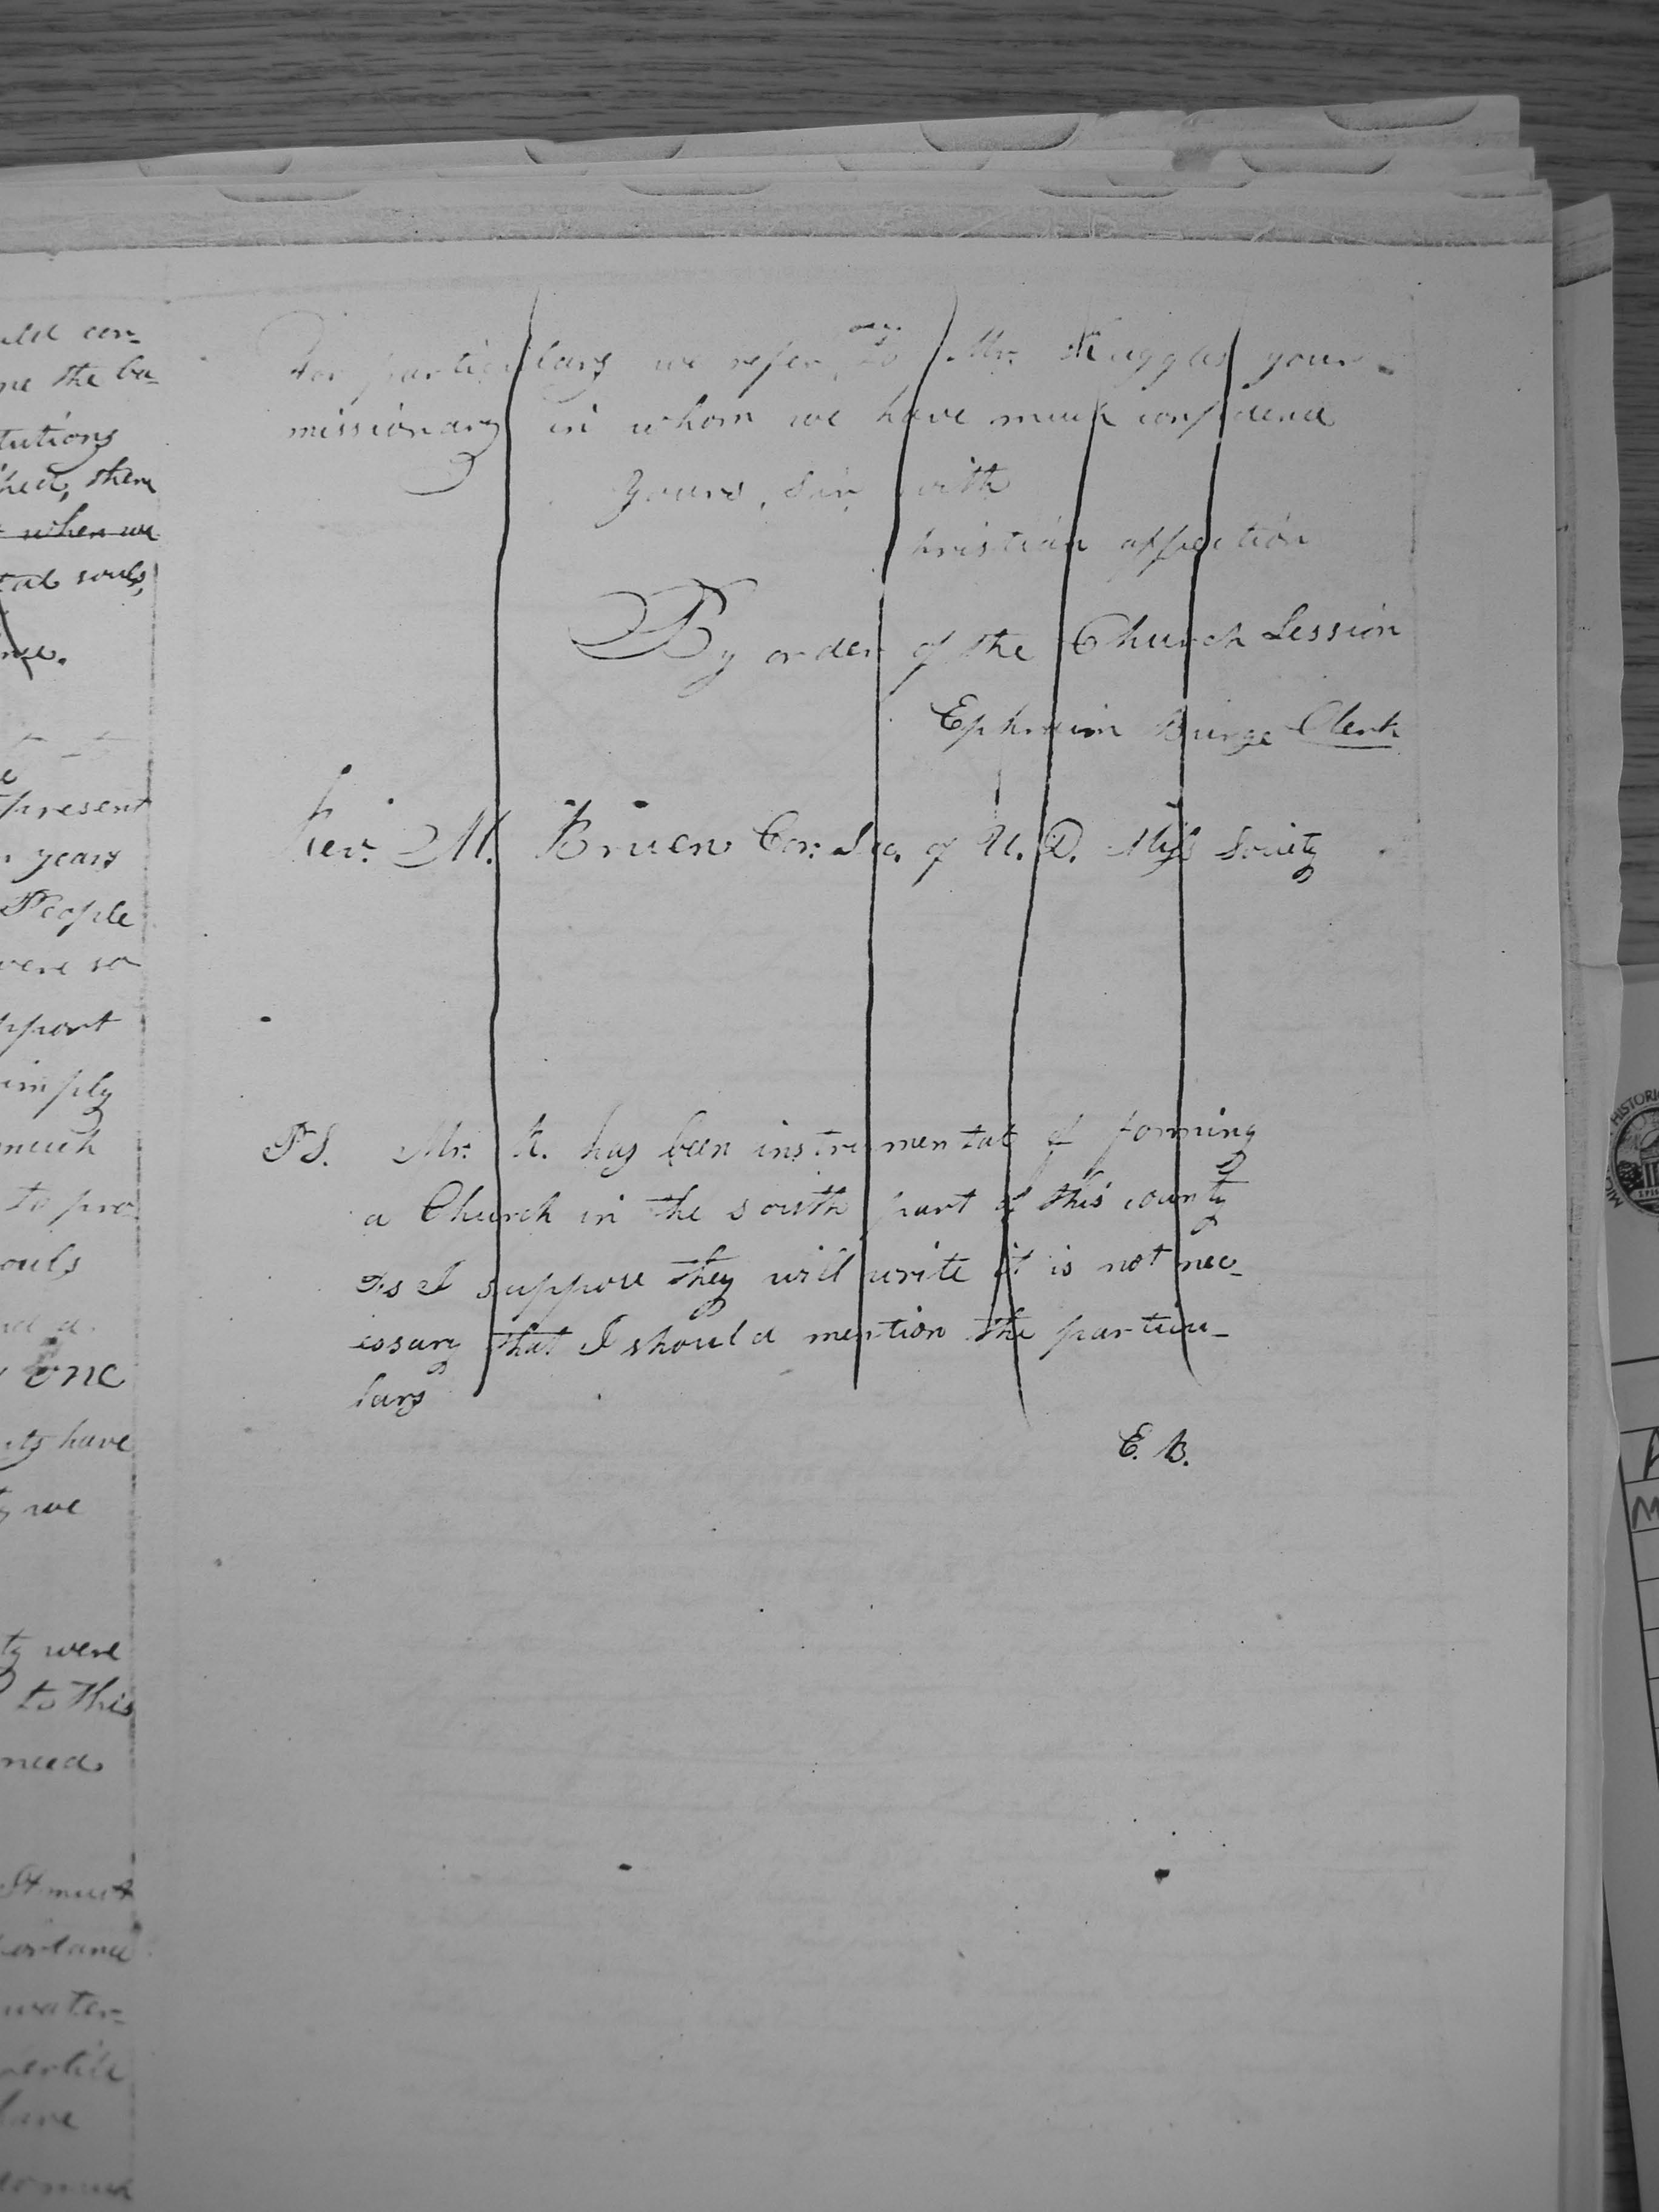 uld con-
me the ba-
tutions
ched, there
when we
tal souls,
me.
present
years
People
were so
pport
imply
much
to pro
ouls
one
ts have
we
ty were
to this
need
It must
ortance
water-
have
so much
For particulars we refer you to Mr. Ruggles your
missionary in whom we have much confidence
Yours, Sir, with
christian affection
By order of the Church Session
Ephraim Burge Clerk
Rev. M. Bruen Cor: Sec. of U. D. Miss Society
P S. Mr. R. has been instrumental of forming
a Church in the south part of this county
As I suppose they will write it is not nec-
essary that I should mention the particu-
lars
E. B.
HISTORI
MIC